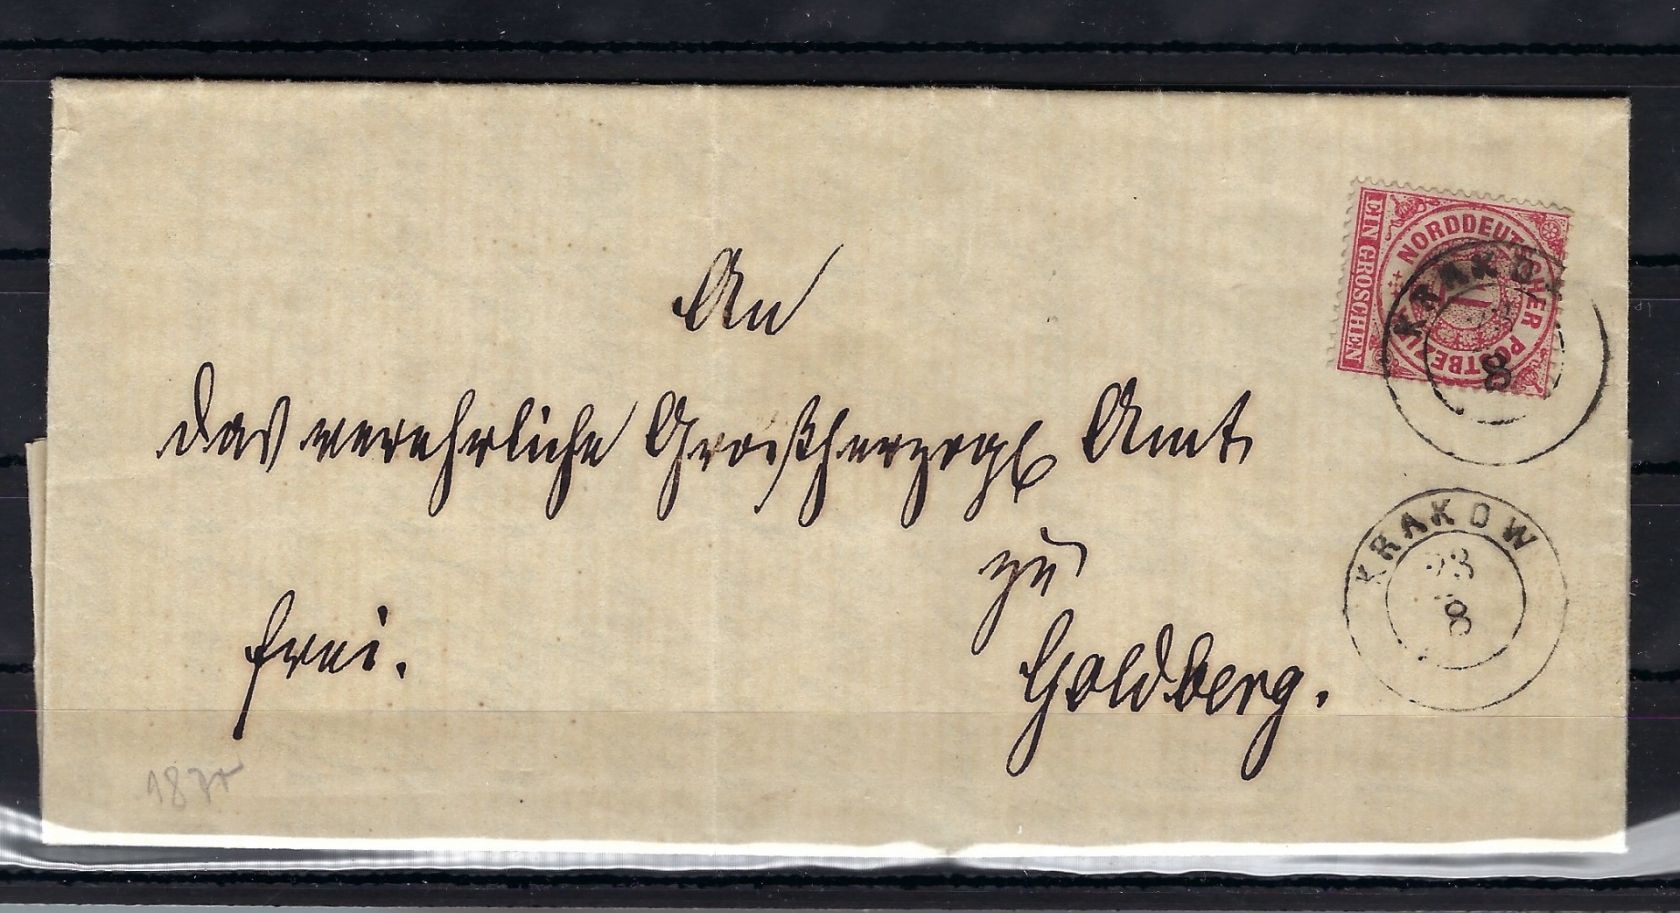 An
das verehrliche Großherzogl Amt
zu
Goldberg.
frei.
NORDDEUTSCHER POSTBEZIRK
EIN GROSCHEN
1
KRAKOW
8
KRAKOW
23
8